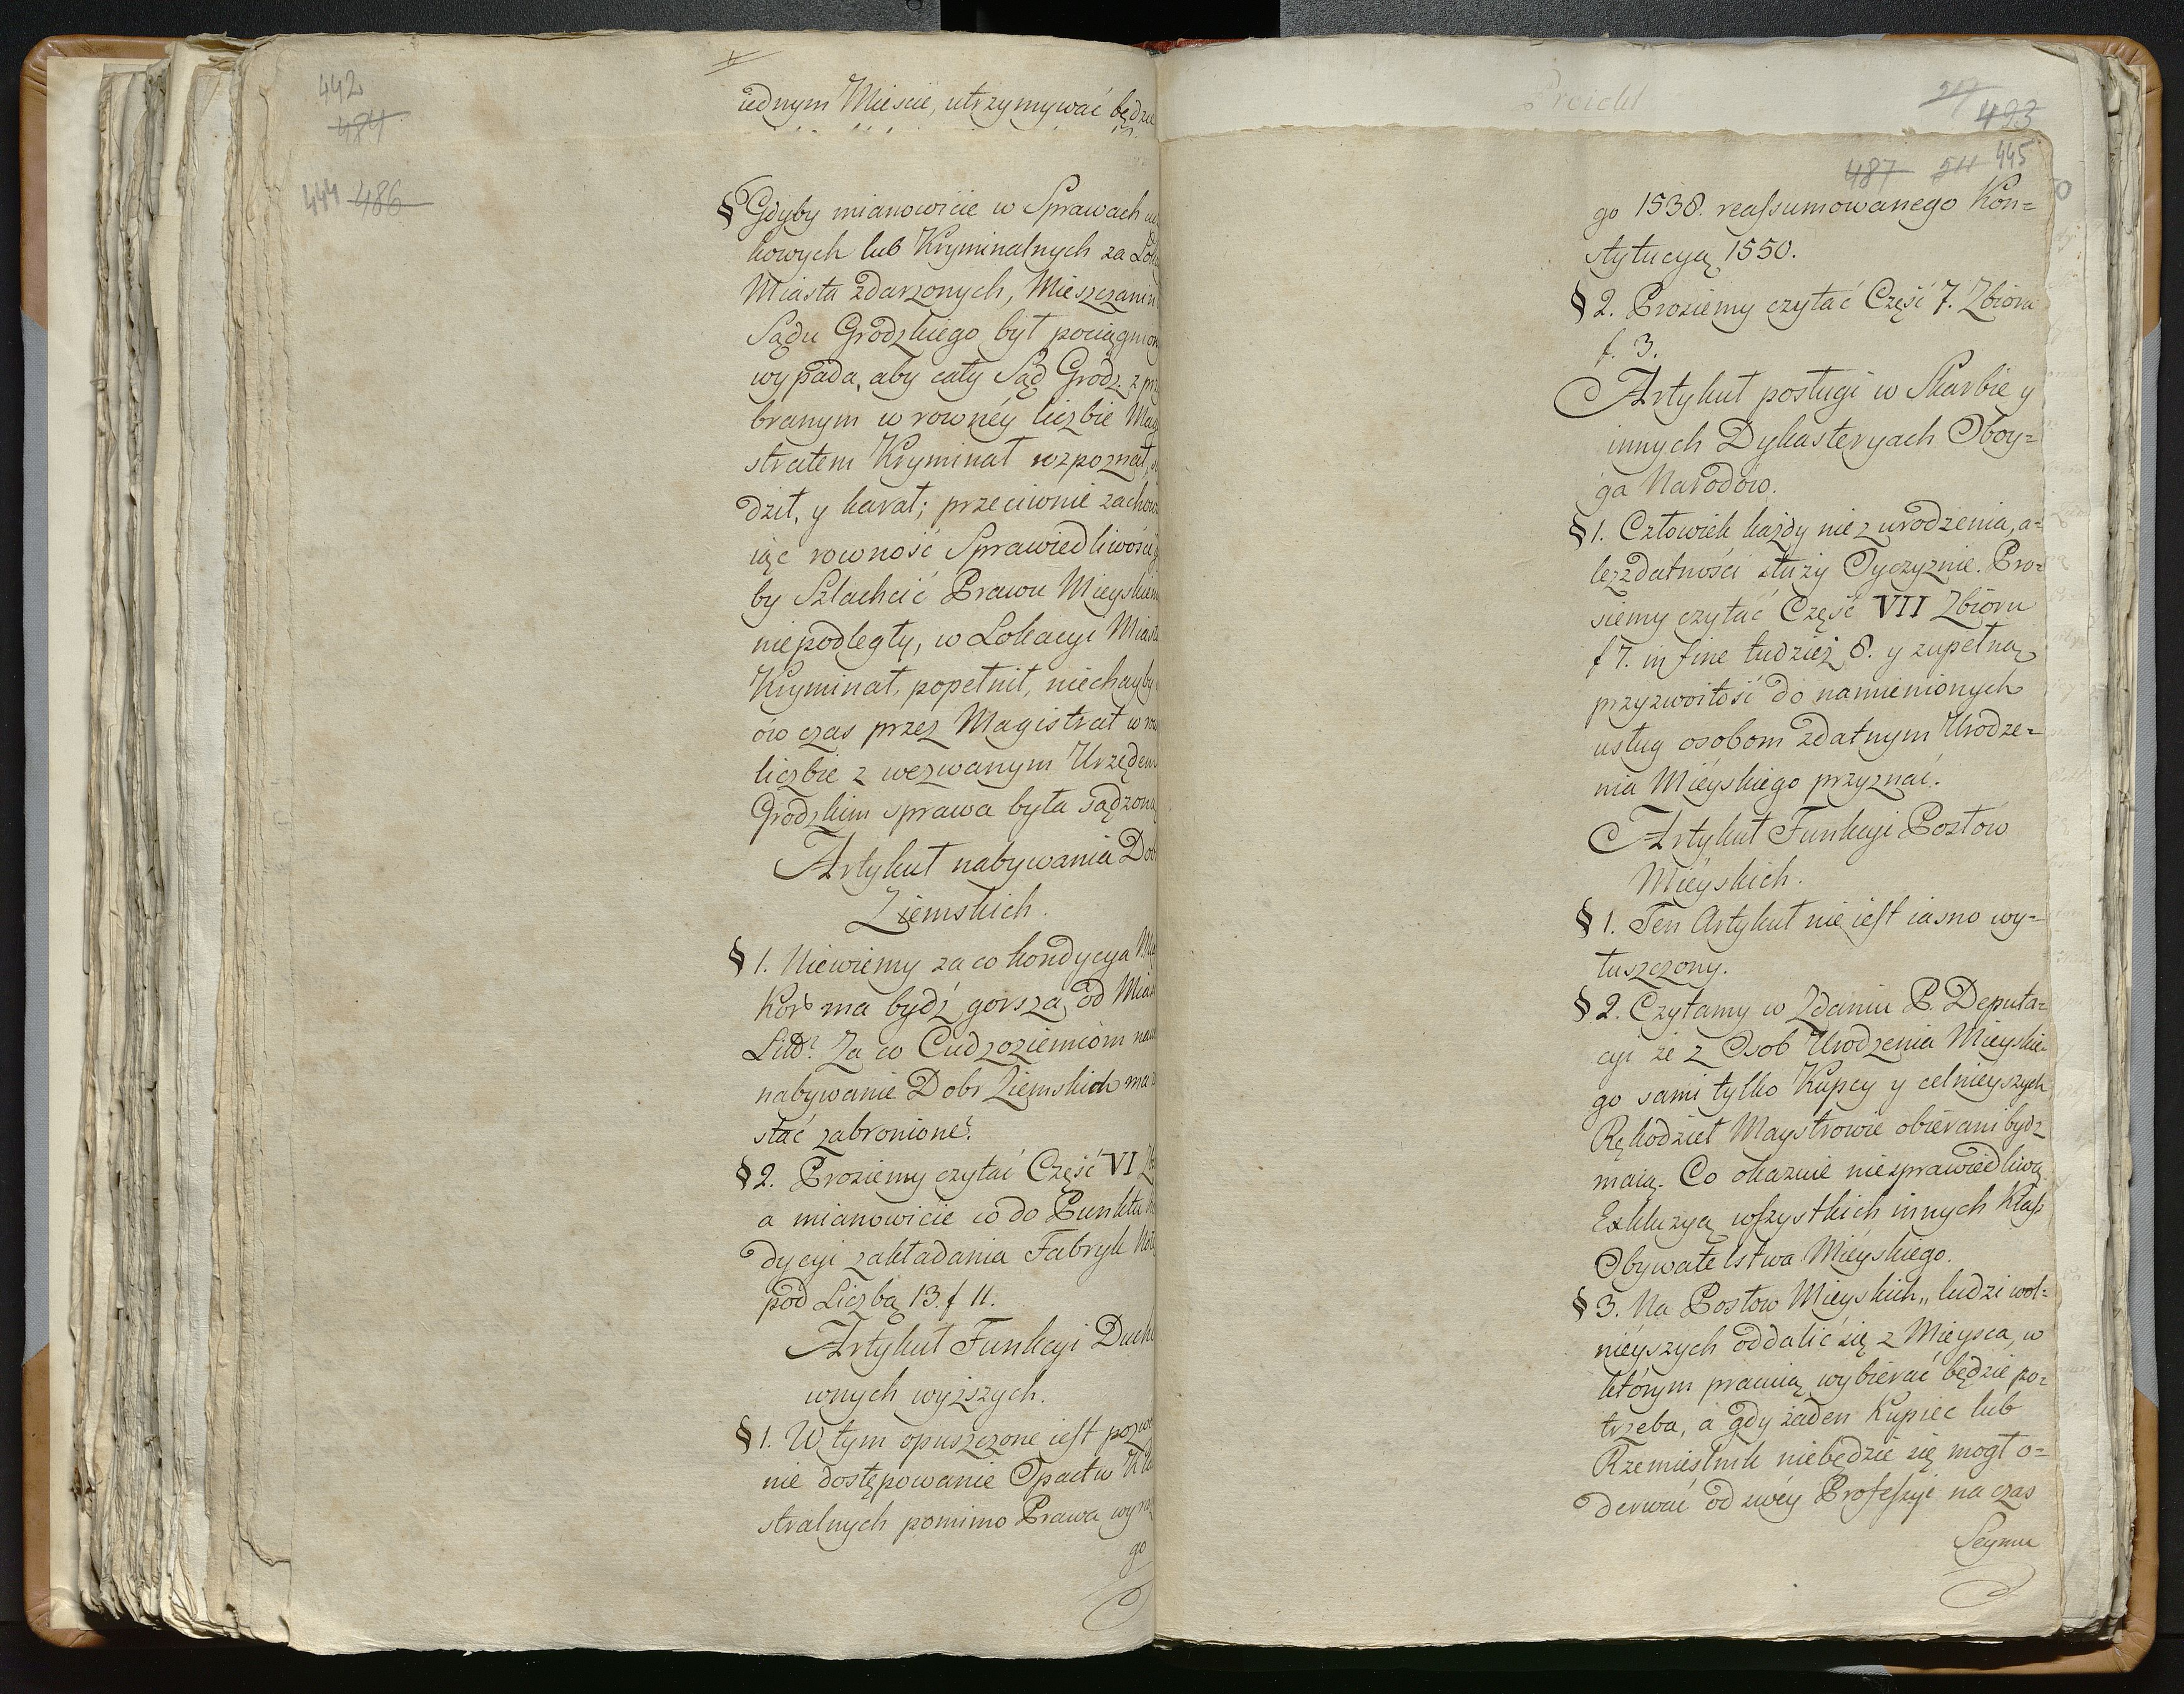 442
484
444 486
iednym Miescie, utrzymywać będzie
§ Gdyby mianowicie w Sprawach
kowych lub Kryminalnych za Lok
Miasta zdarzonych, Mieszczanin
Sądu Grodzkiego był pociągnion
wypada, aby cały Sąd Grodz. z prz
branym w rownéy liczbie Mag
stratem Kryminał rozpoznał,
dził, y karał; przeciwnie zachow
iąc rowność Sprawiedliwości
by Szlachcić Prawu Mieyskiem
niepodległy, w Lokacyi Miasta
Kryminał, popełnił, niechayby
ów czas przez Magistrat w row
liczbie z wezwanym Urzędem
Grodzkim sprawa była sądzoną
Artykuł nabywania Dob
Ziemskich.
§ 1. Niewiemy za co kondycya Mia
Kor: ma bydź gorszą od Miast
Litt? Za co Cudzoziemcóm
nabywanie Dobr Ziemskich ma
stać zabronione?
§ 2. Prosiemy czytać Część VI Zb
a mianowicie co do Punktu
dycyi zakładania Fabryk
pod Liczbą 13. f 11.
Artykuł Funkcyi Ducho
wnych wyższych.
§ 1. W tym opuszczone iest pozwo
nie dostępowanie Opactw Kla
stralnych pomimo Prawa wyra
go
493
487 511 445
go 1538. reassumowanego Kon=
stytucyą 1550.
§ 2. Prosiemy czytać Część 7. Zbioru
f. 3.
Artykuł posługi w Skarbie y
innych Dykasteryach Oboy=
ga Narodów.
§ 1. Człowiek każdy nie z urodzenia, a=
lez zdatności służy Oyczyznie. Pro=
siemy czytać Część VII Zbioru
f 7. in fine tudzież 8. y zupełną
przyzwoitość do namienionych
usług osobom zdatnym Urodze=
nia Mieyskiego przyznać.
Artykuł Funkcyi Posłow
Mieyskich.
§ 1. Ten Artykuł nie iest iasno wy=
tuszczony.
§ 2. Czytamy w Zdaniu P. Deputa=
cyi że z Osob Urodzenia Mieyskie=
go sami tylko Kupcy y celnieyszych
Rękodzieł Maystrowie obierani bydz
maią. Co okazuie niesprawiedliwą
Exkluzyą wszystkich innych Klass
Obywatelstwa Mieyskiego.
§ 3. Na Posłow Mieyskich „ ludzi wol=
nieyszych oddalić się z Mieysca, w
którym pracuią wybierać będzie po=
trzeba, a gdy żaden Kupiec lub
Rzemieślnik niebędzie się mogł o=
derwać od swéy Professyi na czas
Seymu